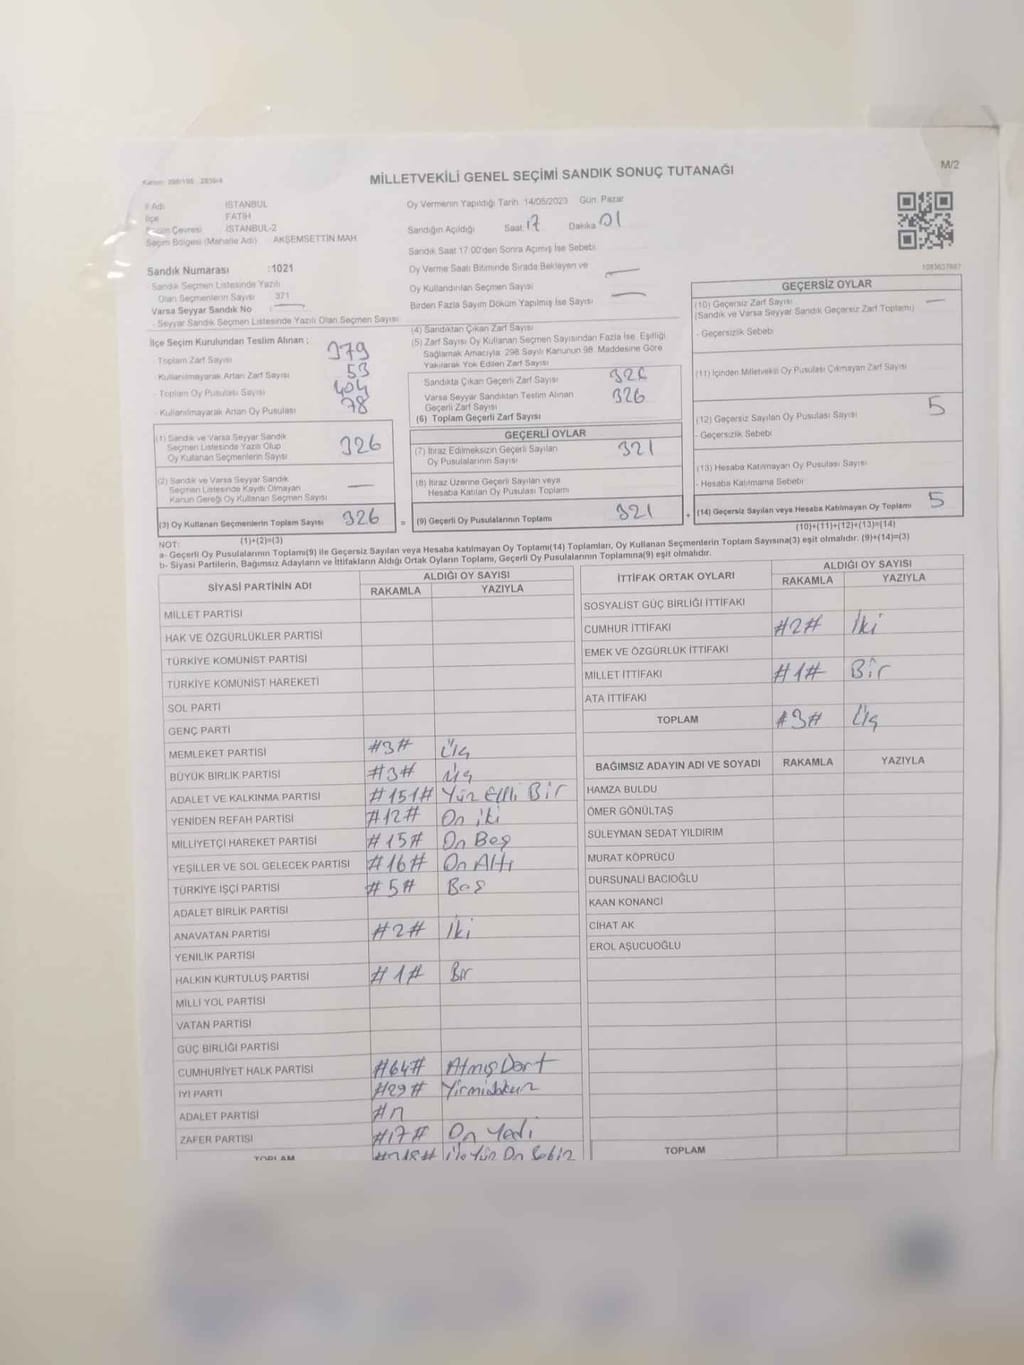 M/2
MİLLETVEKİLİ GENEL SEÇİMİ SANDIK SONUÇ TUTANAĞI
İl Adı İSTANBUL
İlçe FATİH
Seçim Çevresi İSTANBUL-2
Seçim Bölgesi (Mahalle Adı) AKŞEMSETTİN MAH.
Sandık Numarası :1021
Sandık Seçmen Listesinde Yazılı
Olan Seçmenlerin Sayısı 371
Varsa Seyyar Sandık No :
- Seyyar Sandık Seçmen Listesinde Yazılı Olan Seçmen Sayısı
Oy Vermenin Yapıldığı Tarih 14/05/2023 Gün Pazar
Sandığın Açıldığı Saat 17 Dakika 01
Sandık Saat 17:00'den Sonra Açılmış İse Sebebi
Oy Verme Saati Bitiminde Sırada Bekleyen ve
Oy Kullandırılan Seçmen Sayısı
Birden Fazla Sayım Döküm Yapılmış İse Sayısı
İlçe Seçim Kurulundan Teslim Alınan ;
- Toplam Zarf Sayısı 379
- Kullanılmayarak Artan Zarf Sayısı 53
- Toplam Oy Pusulası Sayısı 404
- Kullanılmayarak Artan Oy Pusulası 78
(1) Sandık ve Varsa Seyyar Sandık
Seçmen Listesinde Yazılı Olup
Oy Kullanan Seçmenlerin Sayısı 326
(2) Sandık ve Varsa Seyyar Sandık
Seçmen Listesinde Kayıtlı Olmayan
Kanun Gereği Oy Kullanan Seçmen Sayısı —
(3) Oy Kullanan Seçmenlerin Toplam Sayısı 326
(1)+(2)=(3)
(4) Sandıktan Çıkan Zarf Sayısı
(5) Zarf Sayısı Oy Kullanan Seçmen Sayısından Fazla İse, Eşitliği
Sağlamak Amacıyla, 298 Sayılı Kanunun 98. Maddesine Göre
Yakılarak Yok Edilen Zarf Sayısı
Sandıkta Çıkan Geçerli Zarf Sayısı 326
Varsa Seyyar Sandıktan Teslim Alınan
Geçerli Zarf Sayısı 326
(6) Toplam Geçerli Zarf Sayısı
GEÇERLİ OYLAR
(7) İtiraz Edilmeksizin Geçerli Sayılan
Oy Pusulalarının Sayısı 321
(8) İtiraz Üzerine Geçerli Sayılan veya
Hesaba Katılan Oy Pusulası Toplamı
= (9) Geçerli Oy Pusulalarının Toplamı 321 +
GEÇERSİZ OYLAR
(10) Geçersiz Zarf Sayısı —
(Sandık ve Varsa Seyyar Sandık Geçersiz Zarf Toplamı)
- Geçersizlik Sebebi
(11) İçinden Milletvekili Oy Pusulası Çıkmayan Zarf Sayısı
(12) Geçersiz Sayılan Oy Pusulası Sayısı 5
- Geçersizlik Sebebi
(13) Hesaba Katılmayan Oy Pusulası Sayısı
- Hesaba Katılmama Sebebi
(14) Geçersiz Sayılan veya Hesaba Katılmayan Oy Toplamı 5
(10)+(11)+(12)+(13)=(14)
NOT:
a- Geçerli Oy Pusulalarının Toplamı(9) ile Geçersiz Sayılan veya Hesaba katılmayan Oy Toplamı(14) Toplamları, Oy Kullanan Seçmenlerin Toplam Sayısına(3) eşit olmalıdır. (9)+(14)=(3)
b- Siyasi Partilerin, Bağımsız Adayların ve İttifakların Aldığı Ortak Oyların Toplamı, Geçerli Oy Pusulalarının Toplamına(9) eşit olmalıdır.
SİYASİ PARTİNİN ADI ALDIĞI OY SAYISI
RAKAMLA YAZIYLA
MİLLET PARTİSİ
HAK VE ÖZGÜRLÜKLER PARTİSİ
TÜRKİYE KOMÜNİST PARTİSİ
TÜRKİYE KOMÜNİST HAREKETİ
SOL PARTİ
GENÇ PARTİ
MEMLEKET PARTİSİ #3# Üç
BÜYÜK BİRLİK PARTİSİ #3# Üç
ADALET VE KALKINMA PARTİSİ #151# Yüz Elli Bir
YENİDEN REFAH PARTİSİ #12# On iki
MİLLİYETÇİ HAREKET PARTİSİ #15# On Beş
YEŞİLLER VE SOL GELECEK PARTİSİ #16# On Altı
TÜRKİYE İŞÇİ PARTİSİ #5# Beş
ADALET BİRLİK PARTİSİ
ANAVATAN PARTİSİ #2# İki
YENİLİK PARTİSİ
HALKIN KURTULUŞ PARTİSİ #1# Bir
MİLLİ YOL PARTİSİ
VATAN PARTİSİ
GÜÇ BİRLİĞİ PARTİSİ
CUMHURİYET HALK PARTİSİ #64# Atmış Dört
İYİ PARTİ #29# Yirmidokuz
ADALET PARTİSİ
ZAFER PARTİSİ #17# On Yedi
TOPLAM #318#
İTTİFAK ORTAK OYLARI ALDIĞI OY SAYISI
RAKAMLA YAZIYLA
SOSYALİST GÜÇ BİRLİĞİ İTTİFAKI
CUMHUR İTTİFAKI #2# İki
EMEK VE ÖZGÜRLÜK İTTİFAKI
MİLLET İTTİFAKI #1# Bir
ATA İTTİFAKI
TOPLAM #3# Üç
BAĞIMSIZ ADAYIN ADI VE SOYADI RAKAMLA YAZIYLA
HAMZA BULDU
ÖMER GÖNÜLTAŞ
SÜLEYMAN SEDAT YILDIRIM
MURAT KÖPRÜCÜ
DURSUNALİ BACIOĞLU
KAAN KONANCİ
CİHAT AK
EROL AŞUCUOĞLU
TOPLAM